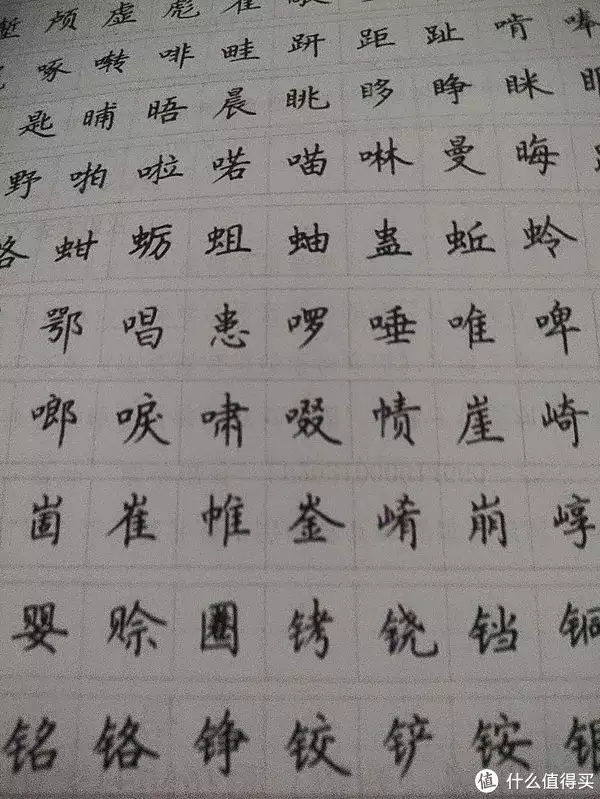 颅 虚 彪 雀
啄 啭 啡 畦 趼 距 趾 啃
匙 晡 晤 晨 眺 眵 睁 眯
野 啪 啦 喏 喵 啉 曼 晦
蚶 蛎 蛆 蚰 蛊 蚯 蛉
鄂 唱 患 啰 唾 唯 啤
啷 唳 啸 啜 帻 崖 崎
崮 崔 帷 崟 崤 崩 崞
婴 赊 圈 铐 铙 铛 铜
铭 铬 铮 铰 铲 铵
值 什么值得买